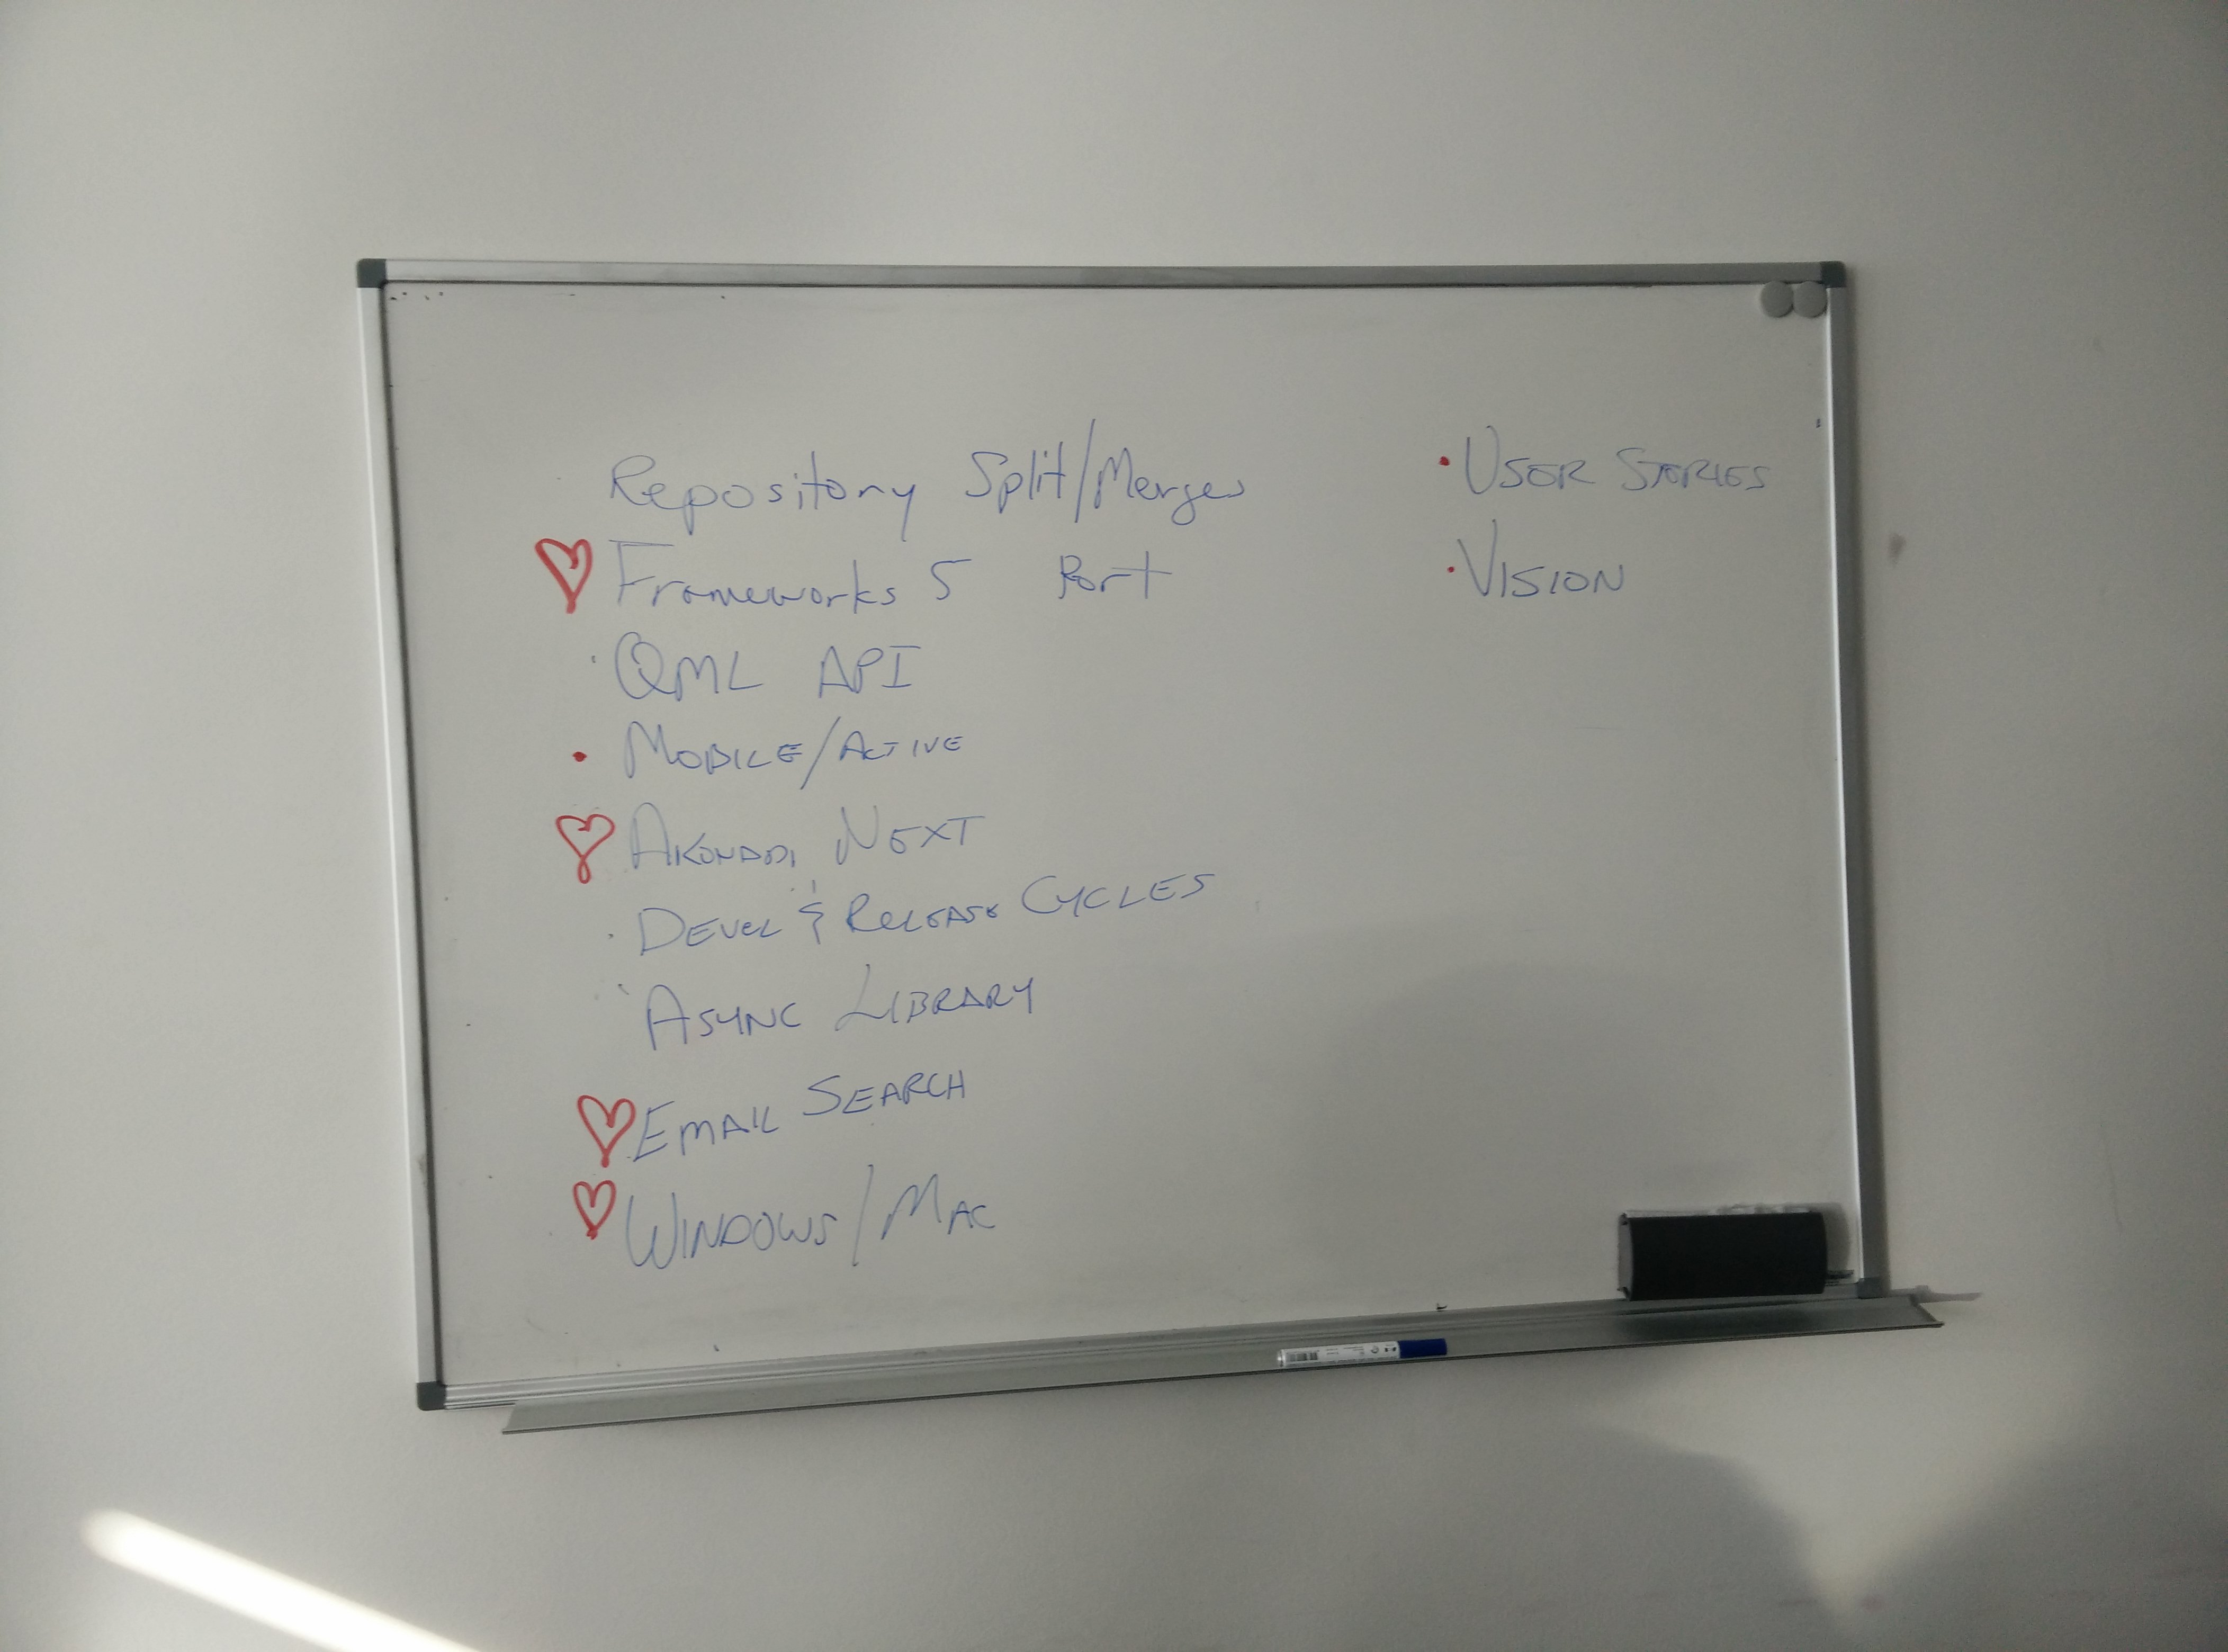 Repository Split/Merges
Frameworks 5 Port
QML API
• Mobile/Active
Akonadi Next
Devel & Release Cycles
Async Library
Email Search
Windows/Mac
• User Stories
• Vision